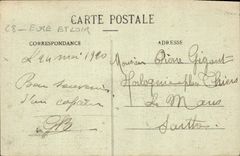 28 - EURE ET LOIR
CARTE POSTALE
CORRESPONDANCE
ADRESSE
Le 24 mai 1920
Bon souvenir
d'un copain
Monsieur Pierre Gigant
Horloger place Thiers
Le Mans
Sarthe